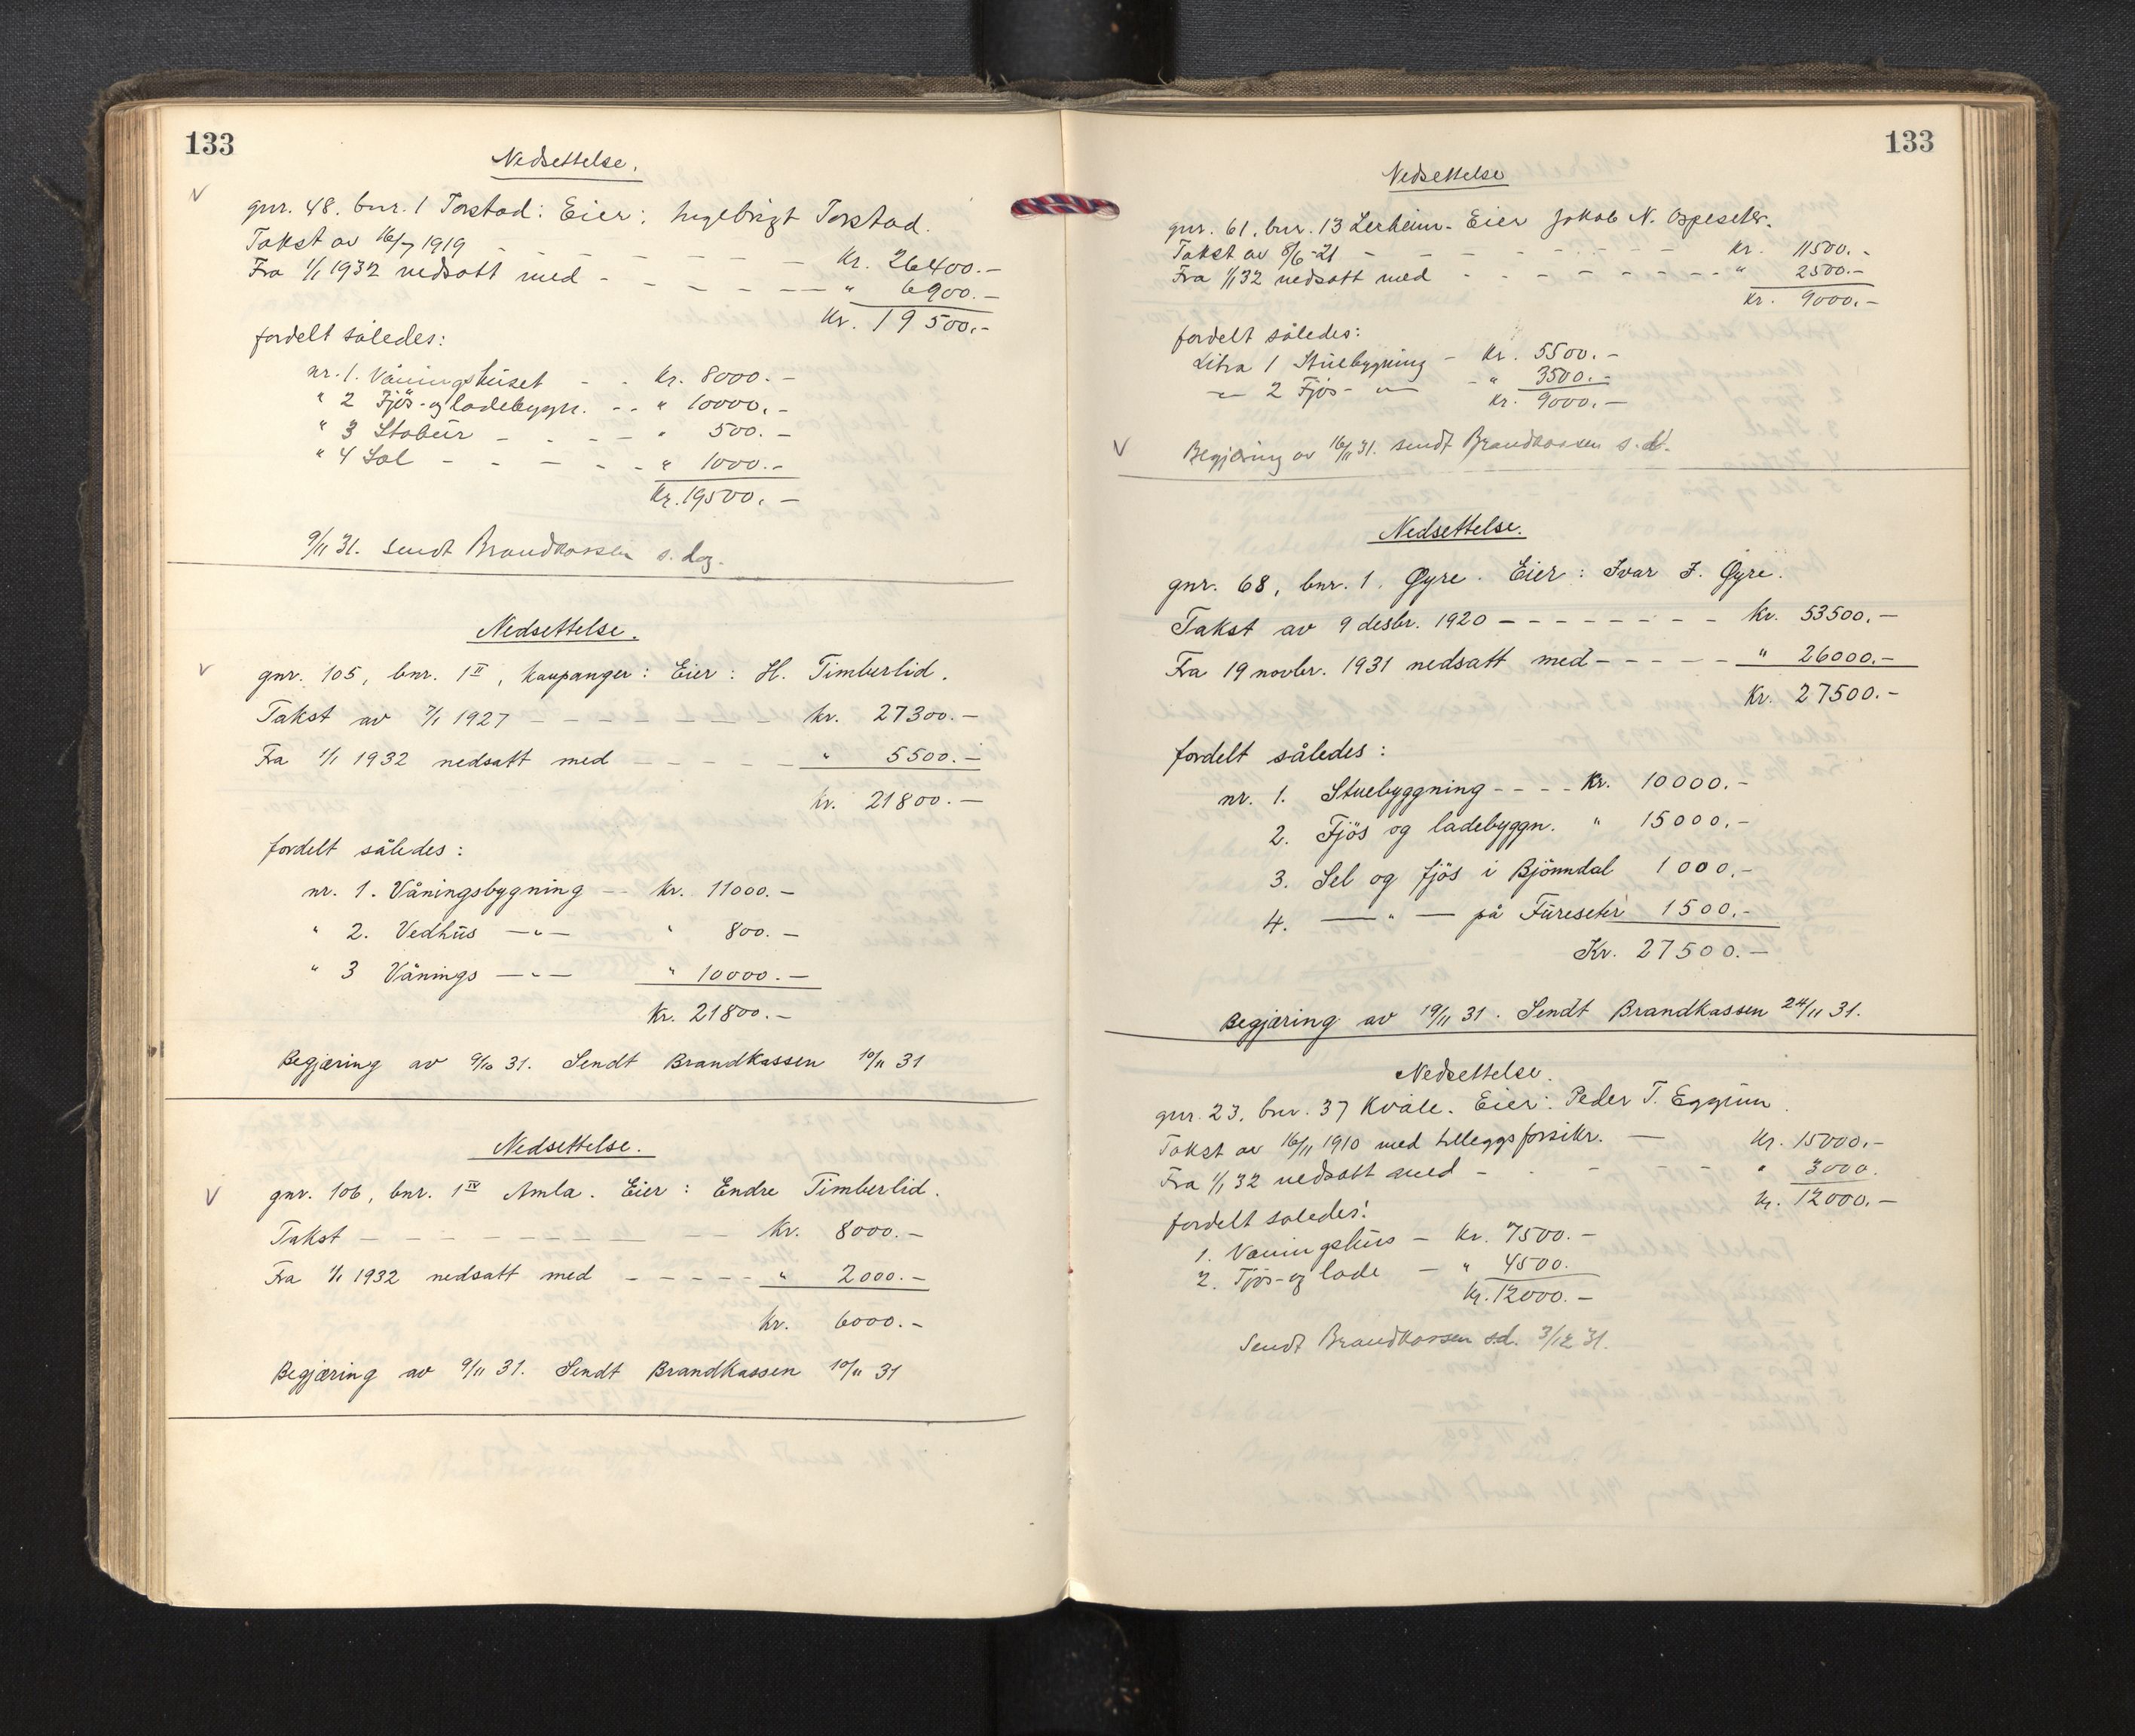 133
Nedsettelse.
gnr. 48. bnr. 1 Torstad: Eier: Ingebrigt Torstad.
Takst av 16/7 1919 - - - - - - Kr. 26400.-
Fra 1/1 1932 nedsatt med - - - - - - " 6900.-
Kr. 19500.-
fordelt således:
nr. 1. Våningshuset - - Kr. 8000.-
" 2 Fjös- og ladebyggn. - - " 10000.-
" 3 Stabur - - - - " 500.-
" 4 Sal - - - - - " 1000.-
Kr. 19500.-
9/11 31. Sendt Brandkassen s. dag.
Nedsettelse.
gnr. 105, bnr. 1 II, Kaupanger: Eier: H. Timberlid.
Takst av 7/1 1927 - - - - - - - kr. 27300.-
Fra 1/1 1932 nedsatt med - - - - - " 5500.-
kr. 21800.-
fordelt således:
nr. 1. Våningsbygning -- kr. 11000.-
" 2. Vedhus -"- " 800.-
" 3 Vånings -"- " 10000.-
Kr. 21800.-
Begjæring av 9/10 31. Sendt Brandkassen 10/11 31
Nedsettelse.
gnr. 106, bnr. 1 IV Amla. Eier: Endre Timberlid.
Takst - - - - - - - - - Kr. 8000.-
Fra 1/1 1932 nedsatt med - - - - - " 2000.-
Kr. 6000.-
Begjæring av 9/11 31. Sendt Brandkassen 10/11 31
133
Nedsettelse
gnr. 61. bnr. 13 Lerheim- Eier Jakob N. Ospeseter.
Takst av 8/6-21 - - - - - - Kr. 11500.-
Fra 1/1 32 nedsatt med - - - - - - " 2500.-
Kr. 9000.-
fordelt således:
Litra 1 Stuebygning - Kr. 5500.-
-"- 2 Fjös- -"- - " 3500.-
Kr. 9000.-
Begjæring av 16/11 31. sendt Brandkassen s. d.
Nedsettelse.
gnr. 68, bnr. 1. Øyre. Eier: Ivar J. Øyre.
Takst av 9 desbr. 1920 - - - - - - - - Kr. 53500.-
Fra 19 novbr. 1931 nedsatt med - - - - - " 26000.-
Kr. 27500.-
fordelt således:
nr. 1. Stuebyggning - - - - Kr. 10000.-
2. Fjös og ladebyggn. " 15000.-
3. Sel og fjös i Bjönndal 1000.-
4. -"- på Fureseter 1500.-
Kr. 27500.-
Begjæring av 19/11 31. Sendt Brandkassen 24/11 31.
Nedsettelse.
gnr. 23. bnr. 37 Kvåle. Eier: Peder T. Eggum
Takst av 16/11 1910 med tilleggsforsikr. - Kr. 15000.-
Fra 1/1 32 nedsatt med - - - - - " 3000.
Kr. 12000.-
fordelt således:
1. Våningshus - Kr. 7500.-
2. Fjös- og lade - " 4500.
Kr. 12000.-
Sendt Brandkassen s.d. 3/12 31.